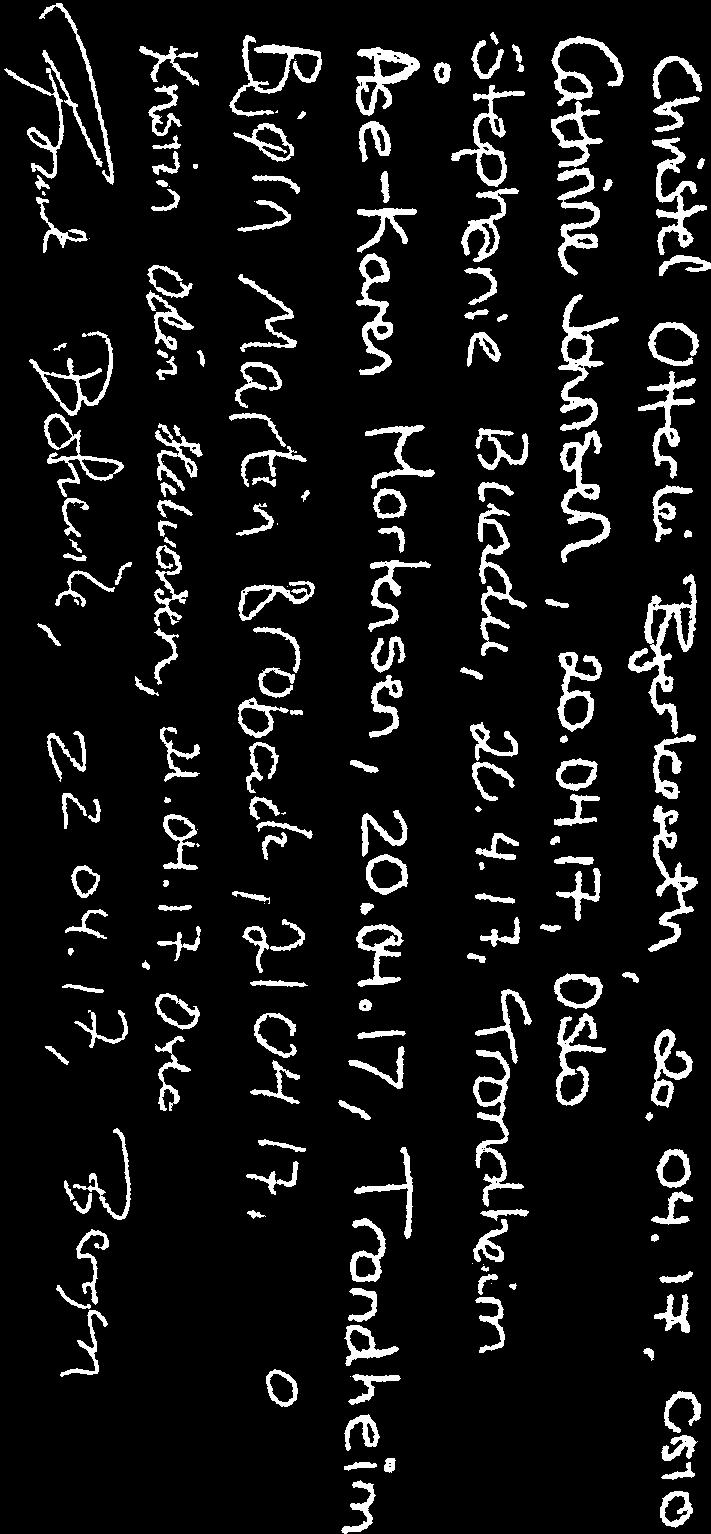 Christel Otterlei Bjerkeseth, 20.04.17, Oslo
Cathrine Johnsen, 20.04.17, Oslo
Stephanie Buadu, 20.4.17, Trondheim
Åse-Karen Mortensen, 20.04.17, Trondheim
Bjørn Martin 21 04 17. O
Kristin Halvorsen, 21.04.17. Oslo
22 04.17, Bergen